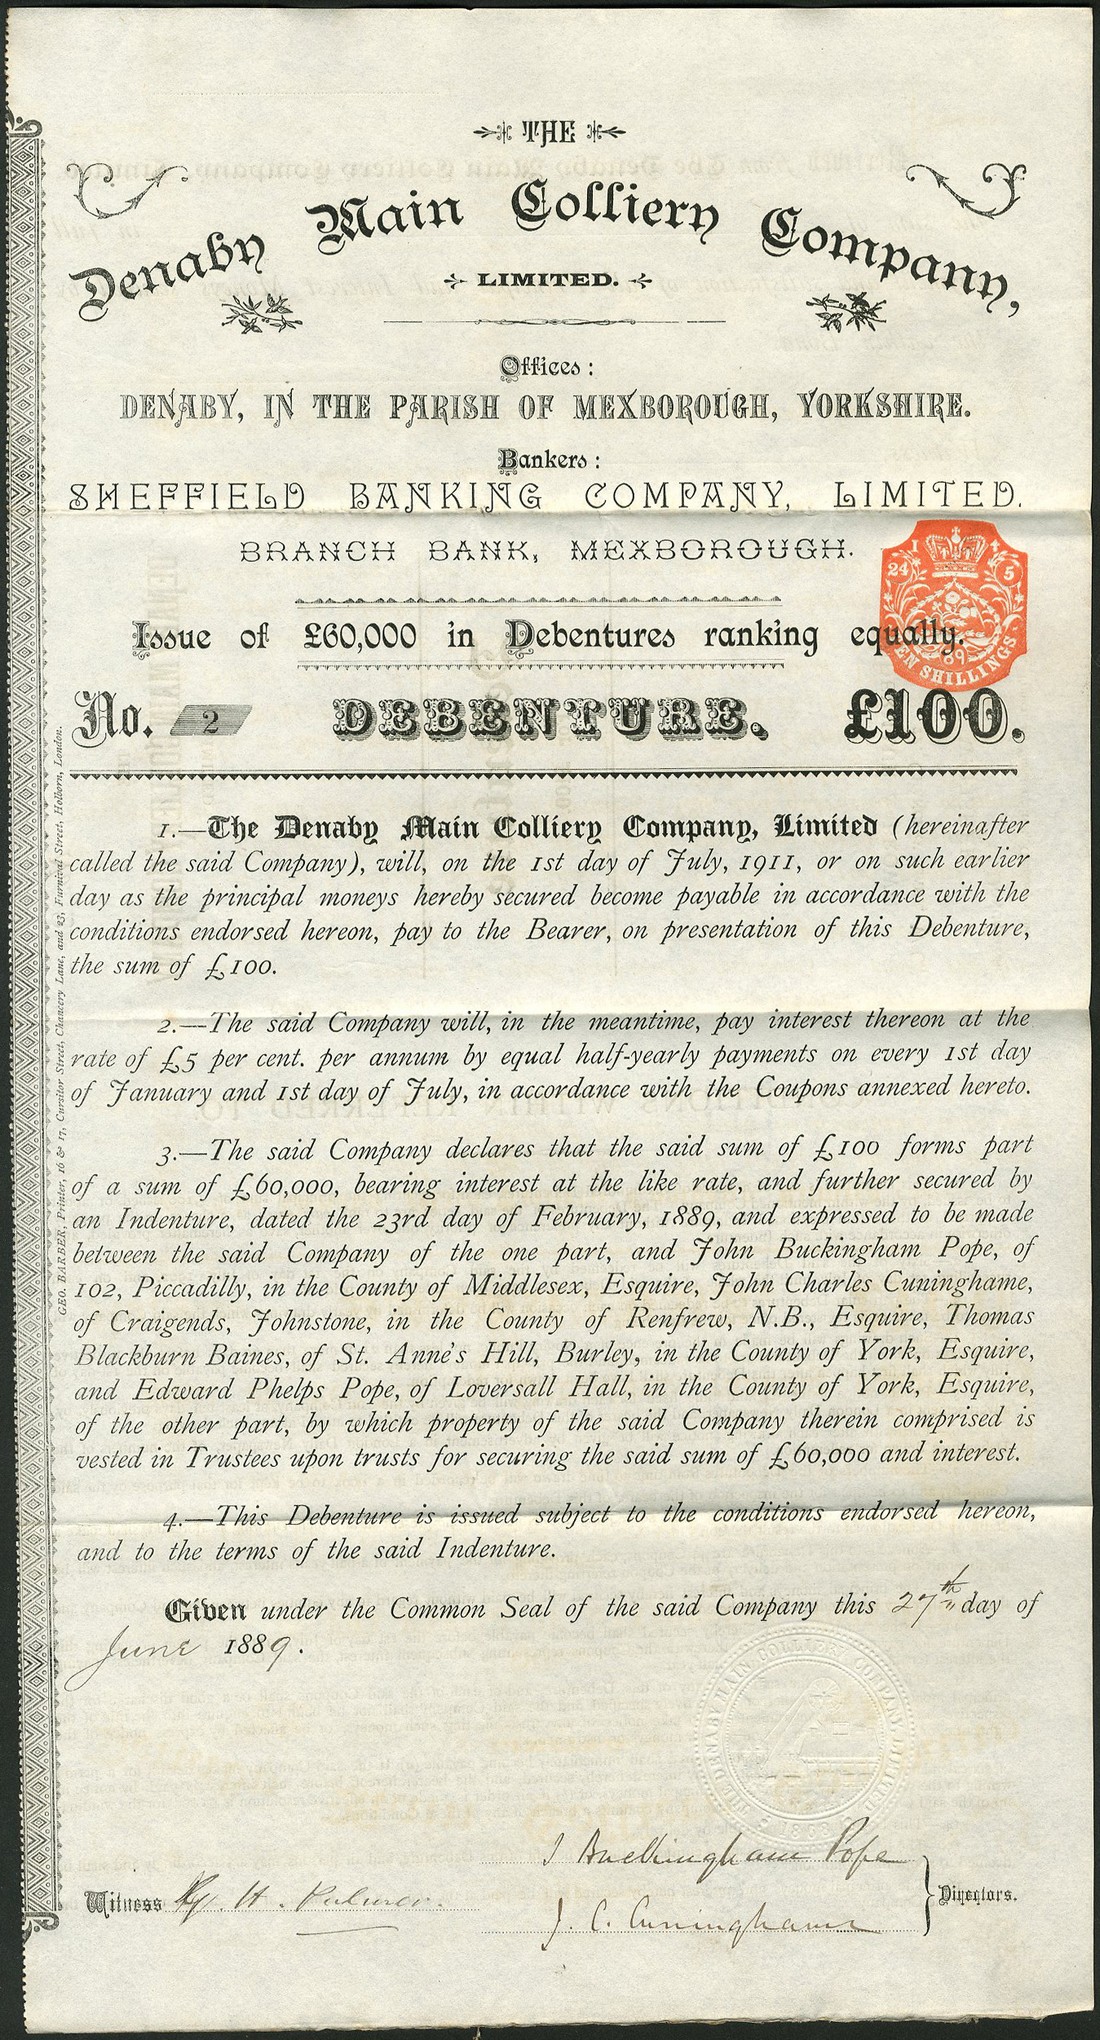 THE
Denaby Main Colliery Company,
LIMITED.
Offices:
DENABY, IN THE PARISH OF MEXBOROUGH, YORKSHIRE.
Bankers:
SHEFFIELD BANKING COMPANY, LIMITED.
BRANCH BANK, MEXBOROUGH.
1
24 5
89
TEN SHILLINGS
Issue of £60,000 in Debentures ranking equally.
No. 2 DEBENTURE. £100.
1.—The Denaby Main Colliery Company, Limited (hereinafter
called the said Company), will, on the 1st day of July, 1911, or on such earlier
day as the principal moneys hereby secured become payable in accordance with the
conditions endorsed hereon, pay to the Bearer, on presentation of this Debenture,
the sum of £100.
2.—The said Company will, in the meantime, pay interest thereon at the
rate of £5 per cent. per annum by equal half-yearly payments on every 1st day
of January and 1st day of July, in accordance with the Coupons annexed hereto.
3.—The said Company declares that the said sum of £100 forms part
of a sum of £60,000, bearing interest at the like rate, and further secured by
an Indenture, dated the 23rd day of February, 1889, and expressed to be made
between the said Company of the one part, and John Buckingham Pope, of
102, Piccadilly, in the County of Middlesex, Esquire, John Charles Cuninghame,
of Craigends, Johnstone, in the County of Renfrew, N.B., Esquire, Thomas
Blackburn Baines, of St. Anne's Hill, Burley, in the County of York, Esquire,
and Edward Phelps Pope, of Loversall Hall, in the County of York, Esquire,
of the other part, by which property of the said Company therein comprised is
vested in Trustees upon trusts for securing the said sum of £60,000 and interest.
4.—This Debenture is issued subject to the conditions endorsed hereon,
and to the terms of the said Indenture.
Given under the Common Seal of the said Company this 27th day of
June 1889.
THE DENABY MAIN COLLIERY COMPANY LIMITED
J Buckingham Pope
Witness H.
J. C. Cuninghame
Directors.
GEO. BARBER, Printer, 16 & 17, Cursitor Street, Chancery Lane, and 23, Furnival Street, Holborn, London.